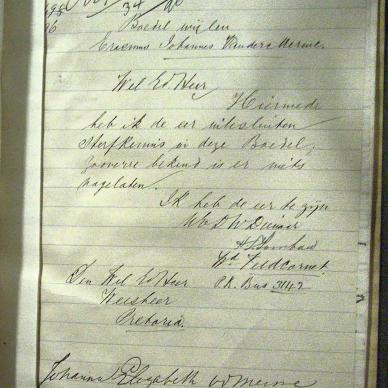 34/96
Boedel wijlen
Erasmus Johannes Van der Merwe.
Wel Ed Heer
Hiermede
heb ik de eer intesluiten
Sterfkennis in deze Boedel,
zooverre bekend is er niets
nagelaten.
Ik heb de eer te zijn
Uw D W Dienaar
Wd Veldcornet
P.K. Bus 3142
Den Wel Ed Heer
Weesheer
Pretoria.
Johanna Elizabeth